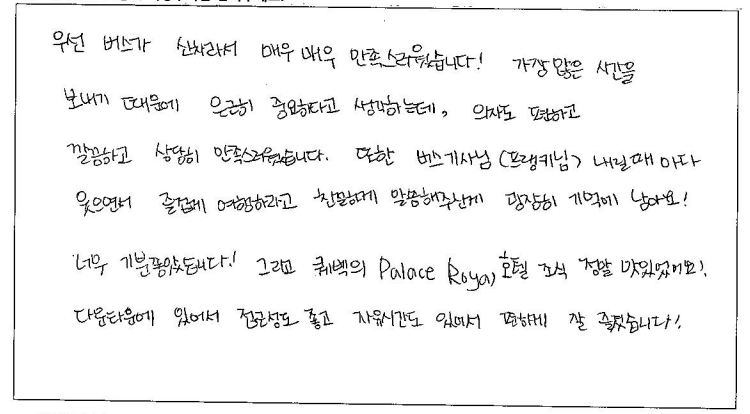 우선 버스가 신차라서 매우 매우 만족스러웠습니다! 가장 많은 시간을
보내기 때문에 은근히 중요하다고 생각하는데, 의자도 편하고
깔끔하고 상당히 만족스러웠습니다. 또한 버스기사님(프랭키님) 내릴때 마다
웃으면서 즐겁게 여행하라고 친절하게 말씀해주신게 굉장히 기억에 남아요!
너무 기분좋았습니다! 그리고 퀘벡의 Palace Royal 호텔 조식 정말 맛있었어요!
다운타운에 있어서 접근성도 좋고 자유시간도 있어서 편하게 잘 즐겼습니다!